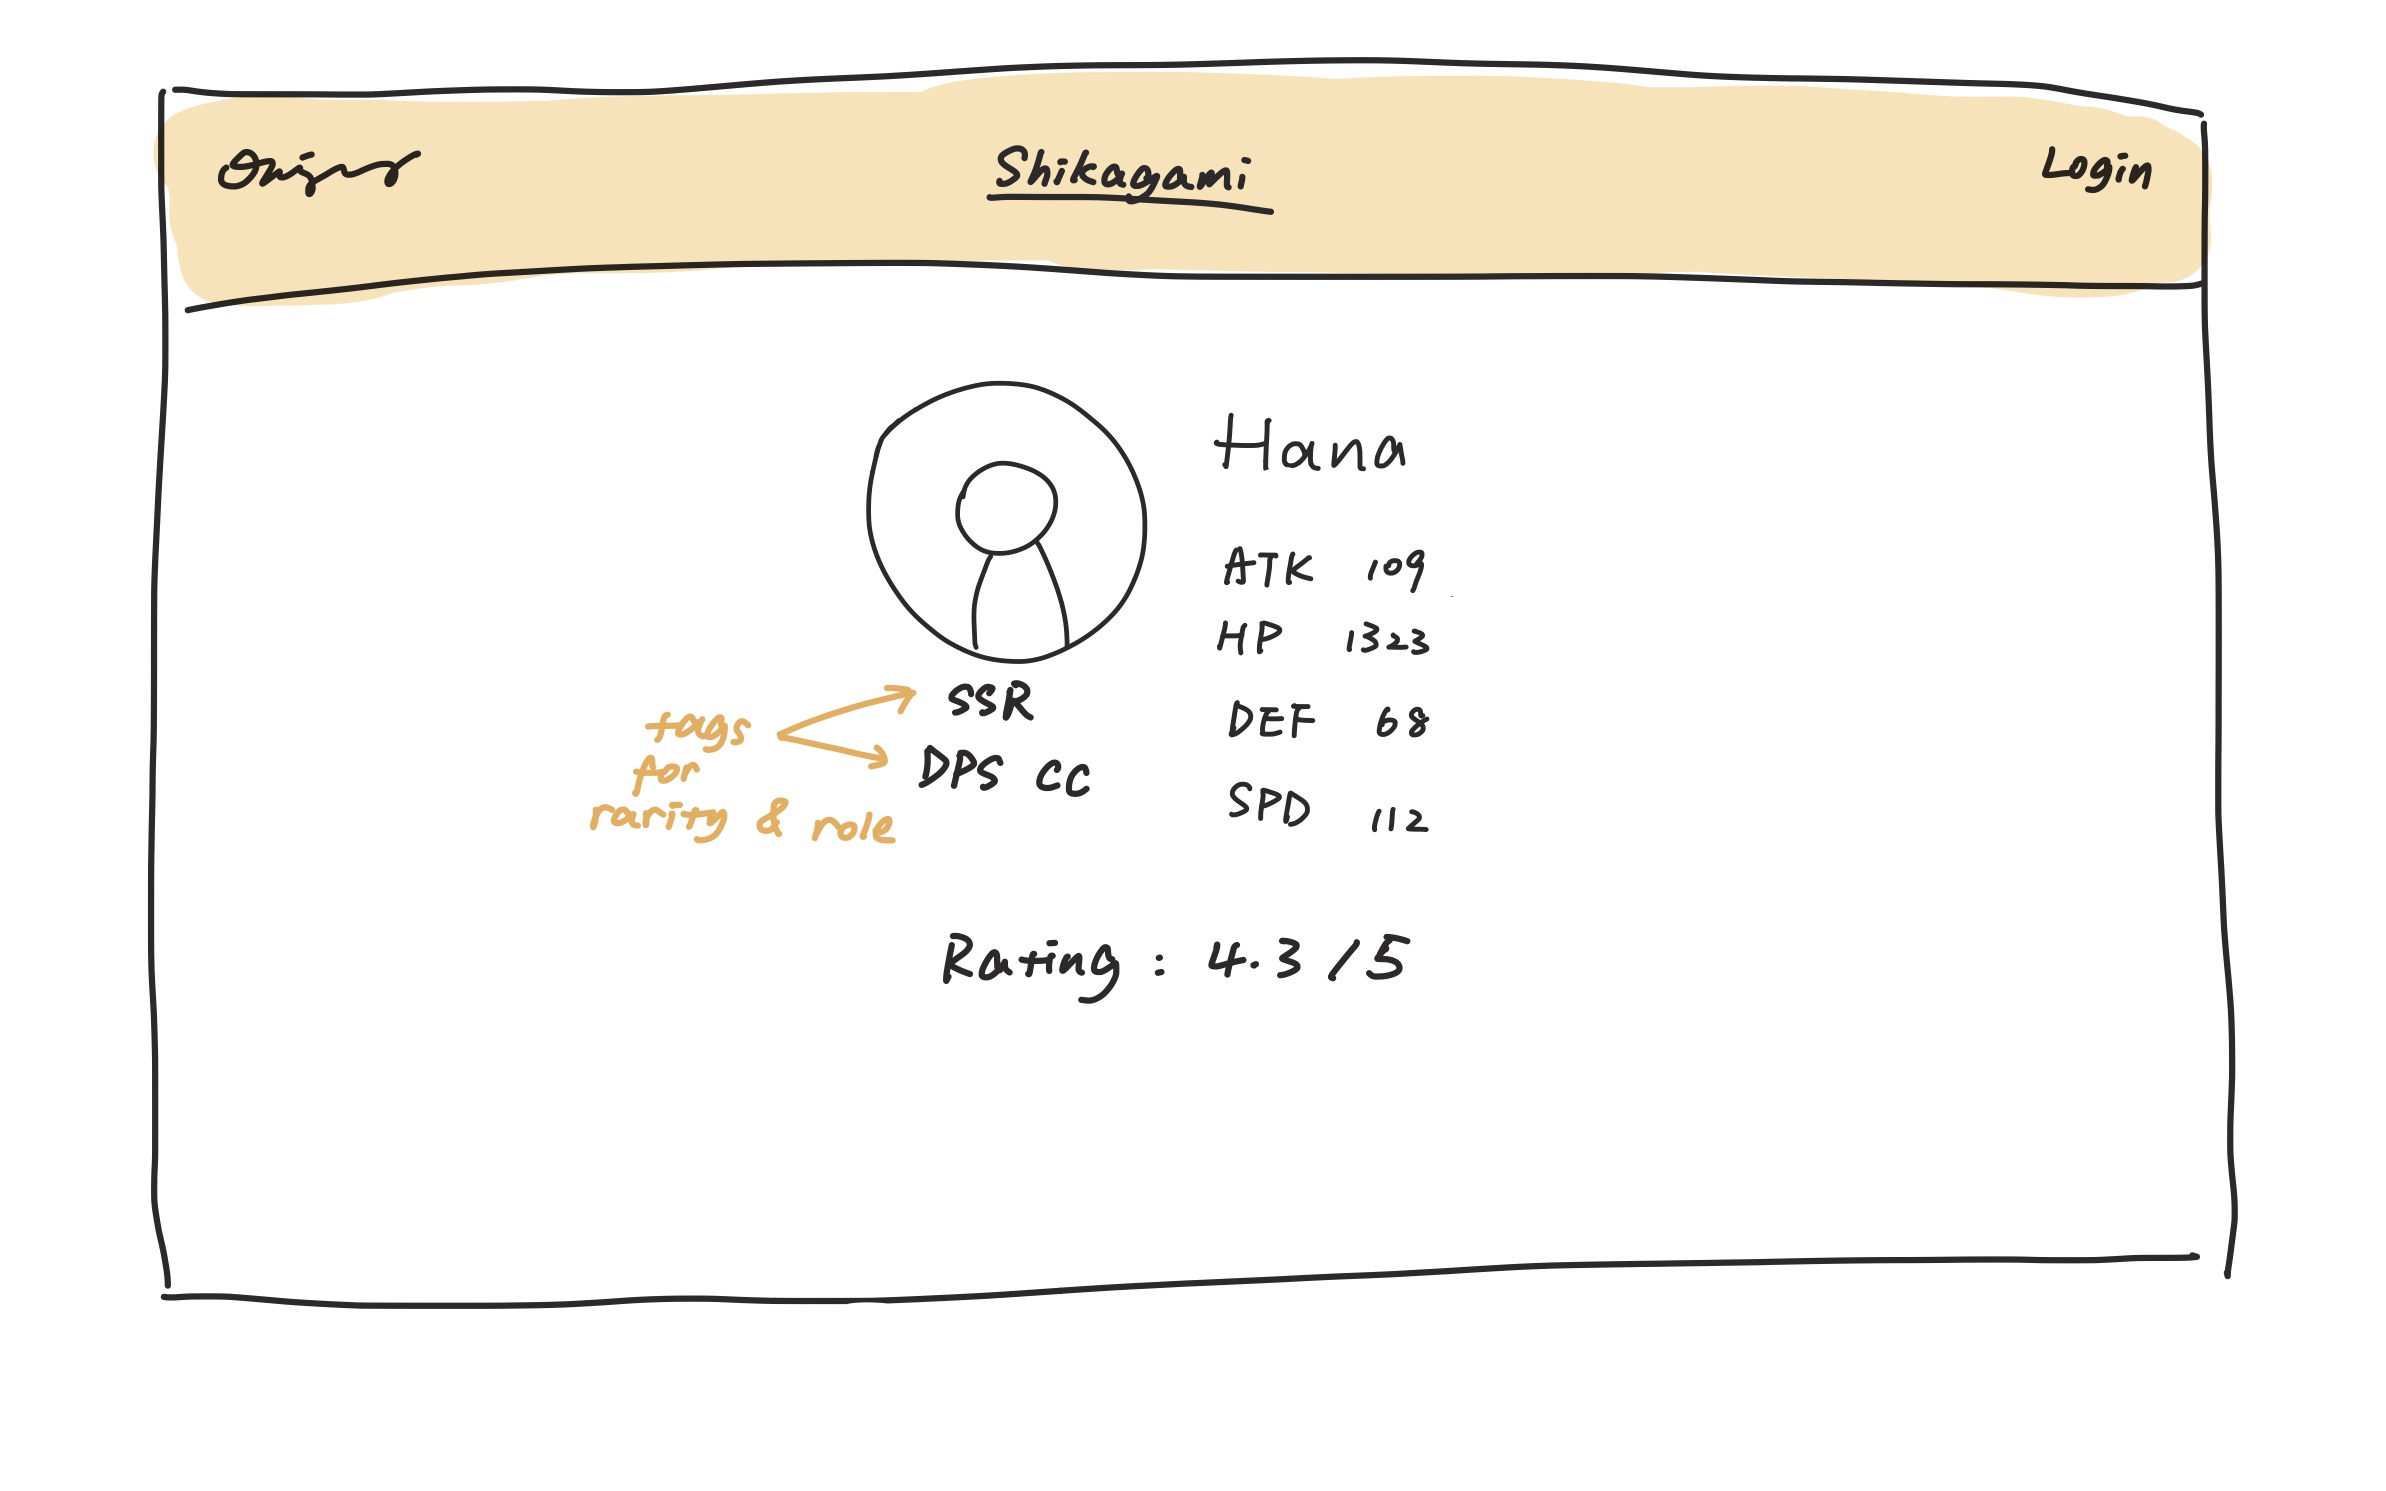 Shikagami
Login
Hana
ATK 109
HP 1323
DEF 68
SPD 112
SSR
DPS CC
tags
for
rarity & role
Rating : 4.3 / 5